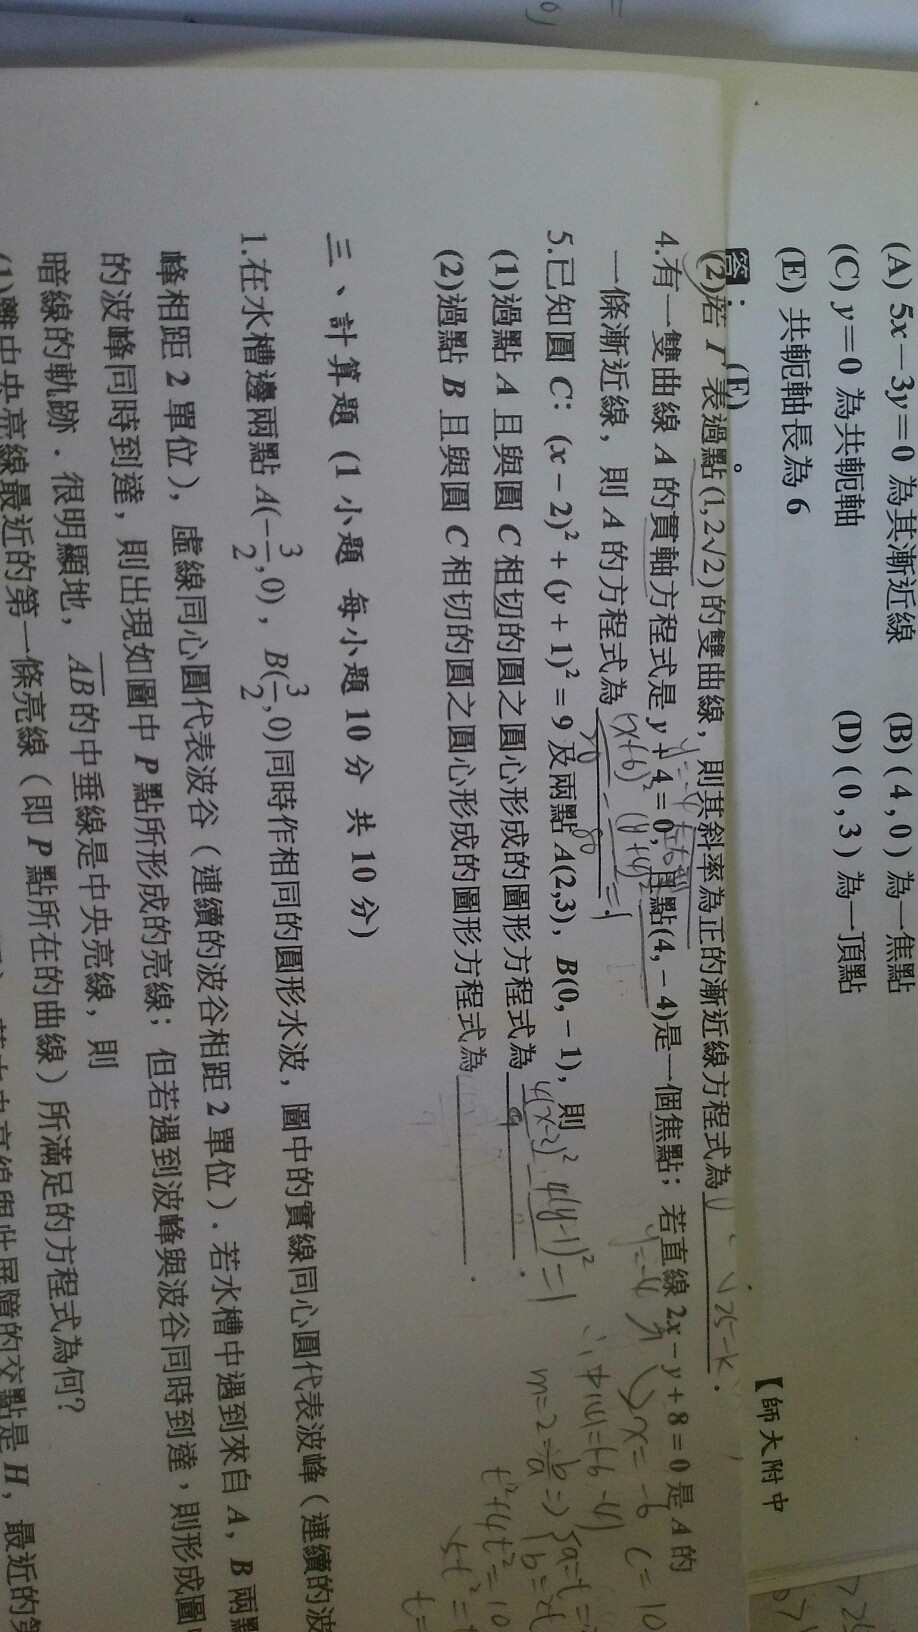 (A) 5x−3y=0 為其漸近線 (B) (4,0) 為一焦點
(C) y=0 為共軛軸 (D) (0,3) 為一頂點
(E) 共軛軸長為 6
【師大附中
答: (E)
(2)若 Γ 表過點(1,2√2)的雙曲線，則其斜率為正的漸近線方程式為
4.有一雙曲線 A 的貫軸方程式是 y+4=0，且點(4,−4)是一個焦點；若直線 2x−y+8=0 是 A 的
一條漸近線，則 A 的方程式為
(x+6)² (y+4)² =1
20 80
5.已知圓 C: (x−2)²+(y+1)²=9 及兩點 A(2,3)，B(0,−1)，則
(1)過點 A 且與圓 C 相切的圓之圓心形成的圖形方程式為
4(x-2)² 4(y-1)² =1
9
(2)過點 B 且與圓 C 相切的圓之圓心形成的圖形方程式為 .
x=-6 c=10
中心(-6,-4)
m=2=b/a⇒{a=t
b=2t
t²+4t²=10
5t²=
t=
三、計算題 (1 小題 每小題 10 分 共 10 分)
1.在水槽邊兩點 A(−3/2,0)，B(3/2,0)同時作相同的圓形水波，圖中的實線同心圓代表波峰（連續的波
峰相距 2 單位），虛線同心圓代表波谷（連續的波谷相距 2 單位）．若水槽中遇到來自 A，B 兩點
的波峰同時到達，則出現如圖中 P 點所形成的亮線；但若遇到波峰與波谷同時到達，則形成圖
暗線的軌跡．很明顯地，AB的中垂線是中央亮線，則
(1)離中央亮線最近的第一條亮線（即 P 點所在的曲線）所滿足的方程式為何？